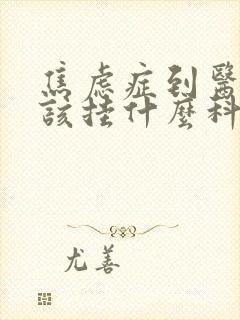 焦虑症到醫
該挂什麼科
尤善